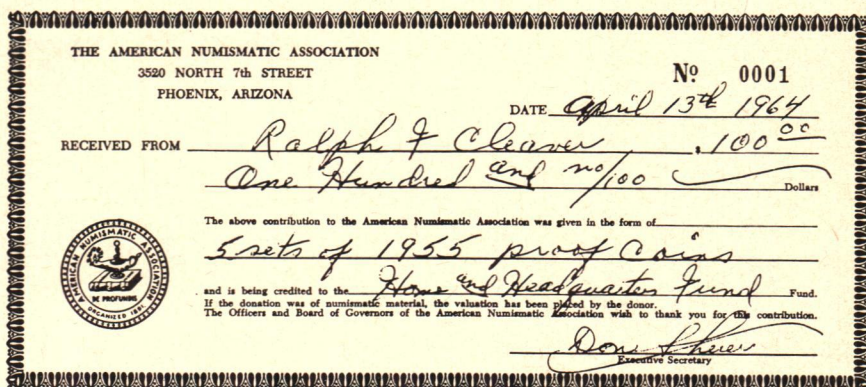 THE AMERICAN NUMISMATIC ASSOCIATION
3520 NORTH 7th STREET
PHOENIX, ARIZONA
No 0001
DATE April 13th 1964
RECEIVED FROM Ralph F Cleaver .100 00
One Hundred and no/100 Dollars
The above contribution to the American Numismatic Association was given in the form of
5 sets of 1955 proof Coins
and is being credited to the Home and Headquarters Fund Fund.
If the donation was of numismatic material, the valuation has been placed by the donor.
The Officers and Board of Governors of the American Numismatic Association wish to thank you for this contribution.
Don Sherer
Executive Secretary
AMERICAN NUMISMATIC ASSOCIATION
DE PROFUNDIS
ORGANIZED 1891